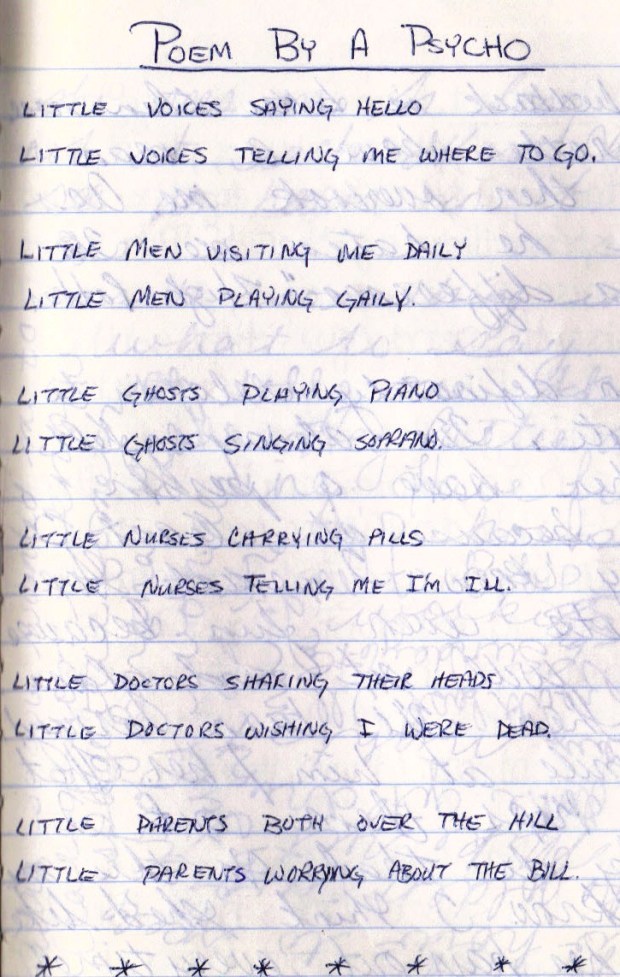 POEM BY A PSYCHO
LITTLE VOICES SAYING HELLO
LITTLE VOICES TELLING ME WHERE TO GO.
LITTLE MEN VISITING ME DAILY
LITTLE MEN PLAYING GAILY.
LITTLE GHOSTS PLAYING PIANO
LITTLE GHOSTS SINGING SOPRANO.
LITTLE NURSES CARRYING PILLS
LITTLE NURSES TELLING ME I'M ILL.
LITTLE DOCTORS SHAKING THEIR HEADS
LITTLE DOCTORS WISHING I WERE DEAD.
LITTLE PARENTS BOTH OVER THE HILL
LITTLE PARENTS WORRYING ABOUT THE BILL.
* * * * * * * *